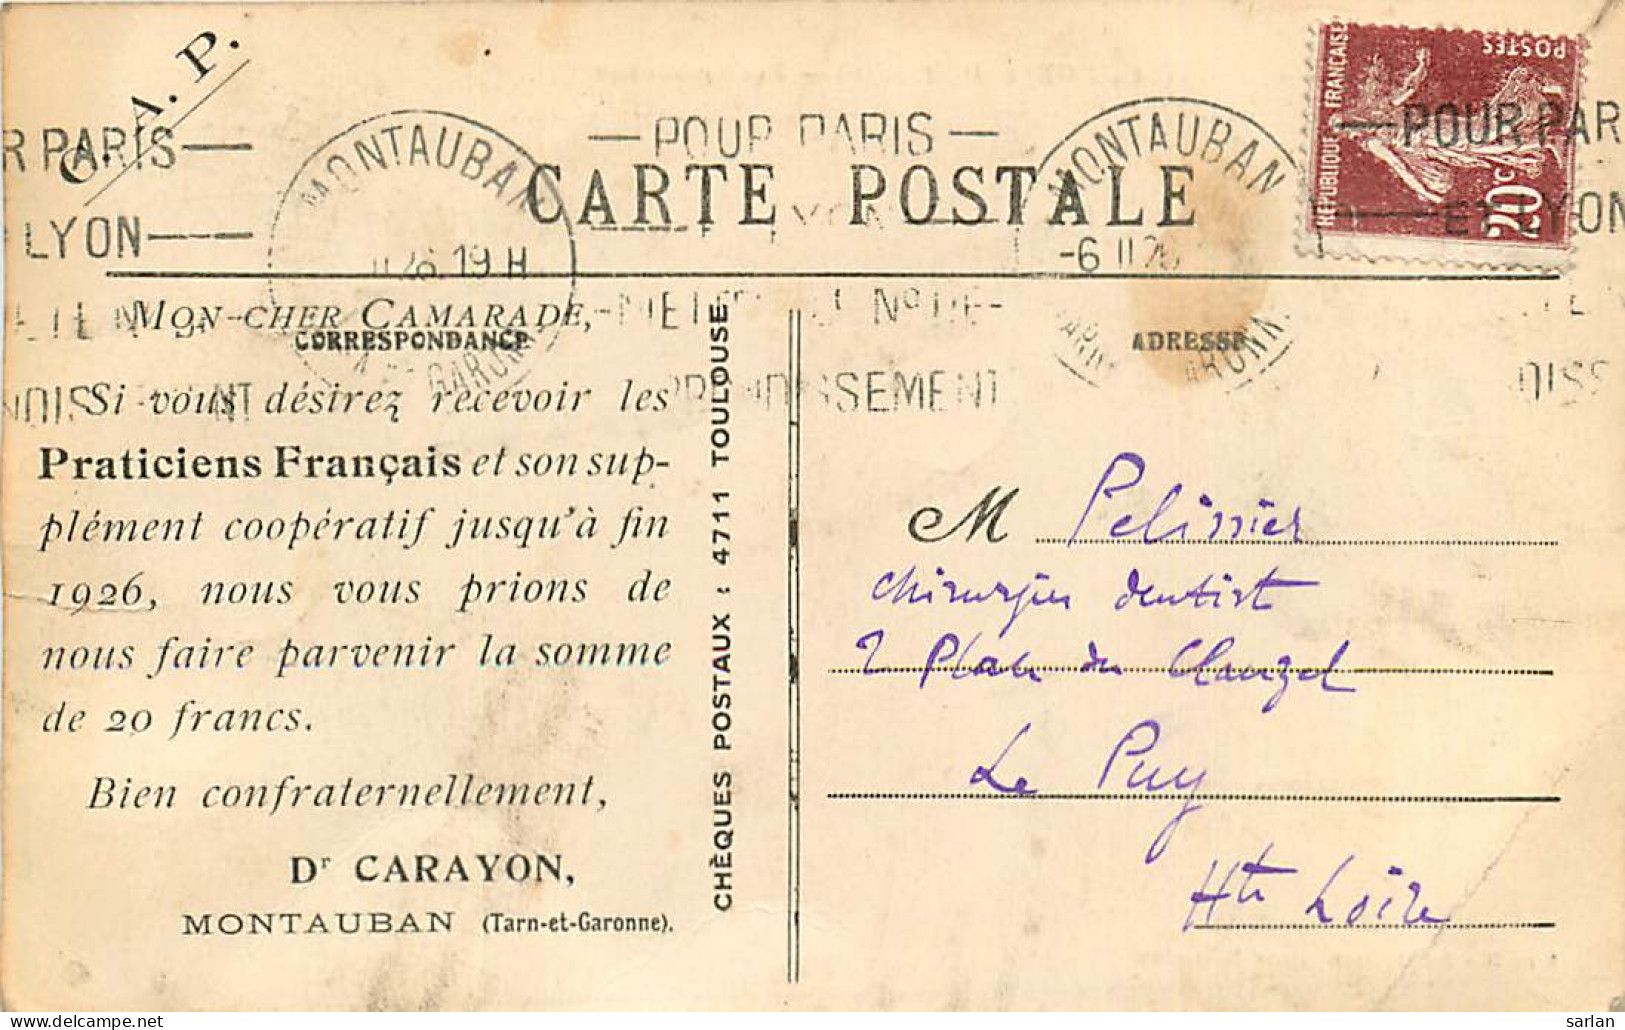 C. A. P.
R PARIS —
LYON —
MONTAUBAN
19 H
GARONNE
— POUR PARIS —
LYON —
METTEZ LE Nº DE-
SSEMENT
MONTAUBAN
-6 II 26
GARONNE
RÉPUBLIQUE FRANÇAISE
POSTES
20c
— POUR PAR
— ET LYON
CARTE POSTALE
CORRESPONDANCE
ADRESSE
MON CHER CAMARADE,
Si vous désirez recevoir les
Praticiens Français et son sup-
plément coopératif jusqu'à fin
1926, nous vous prions de
nous faire parvenir la somme
de 20 francs.
Bien confraternellement,
Dr CARAYON,
MONTAUBAN (Tarn-et-Garonne).
CHÈQUES POSTAUX : 4711 TOULOUSE
M Pelissier
chirurgien dentist
2 Place du Clauzel
Le Puy
Hte Loire
sarlan